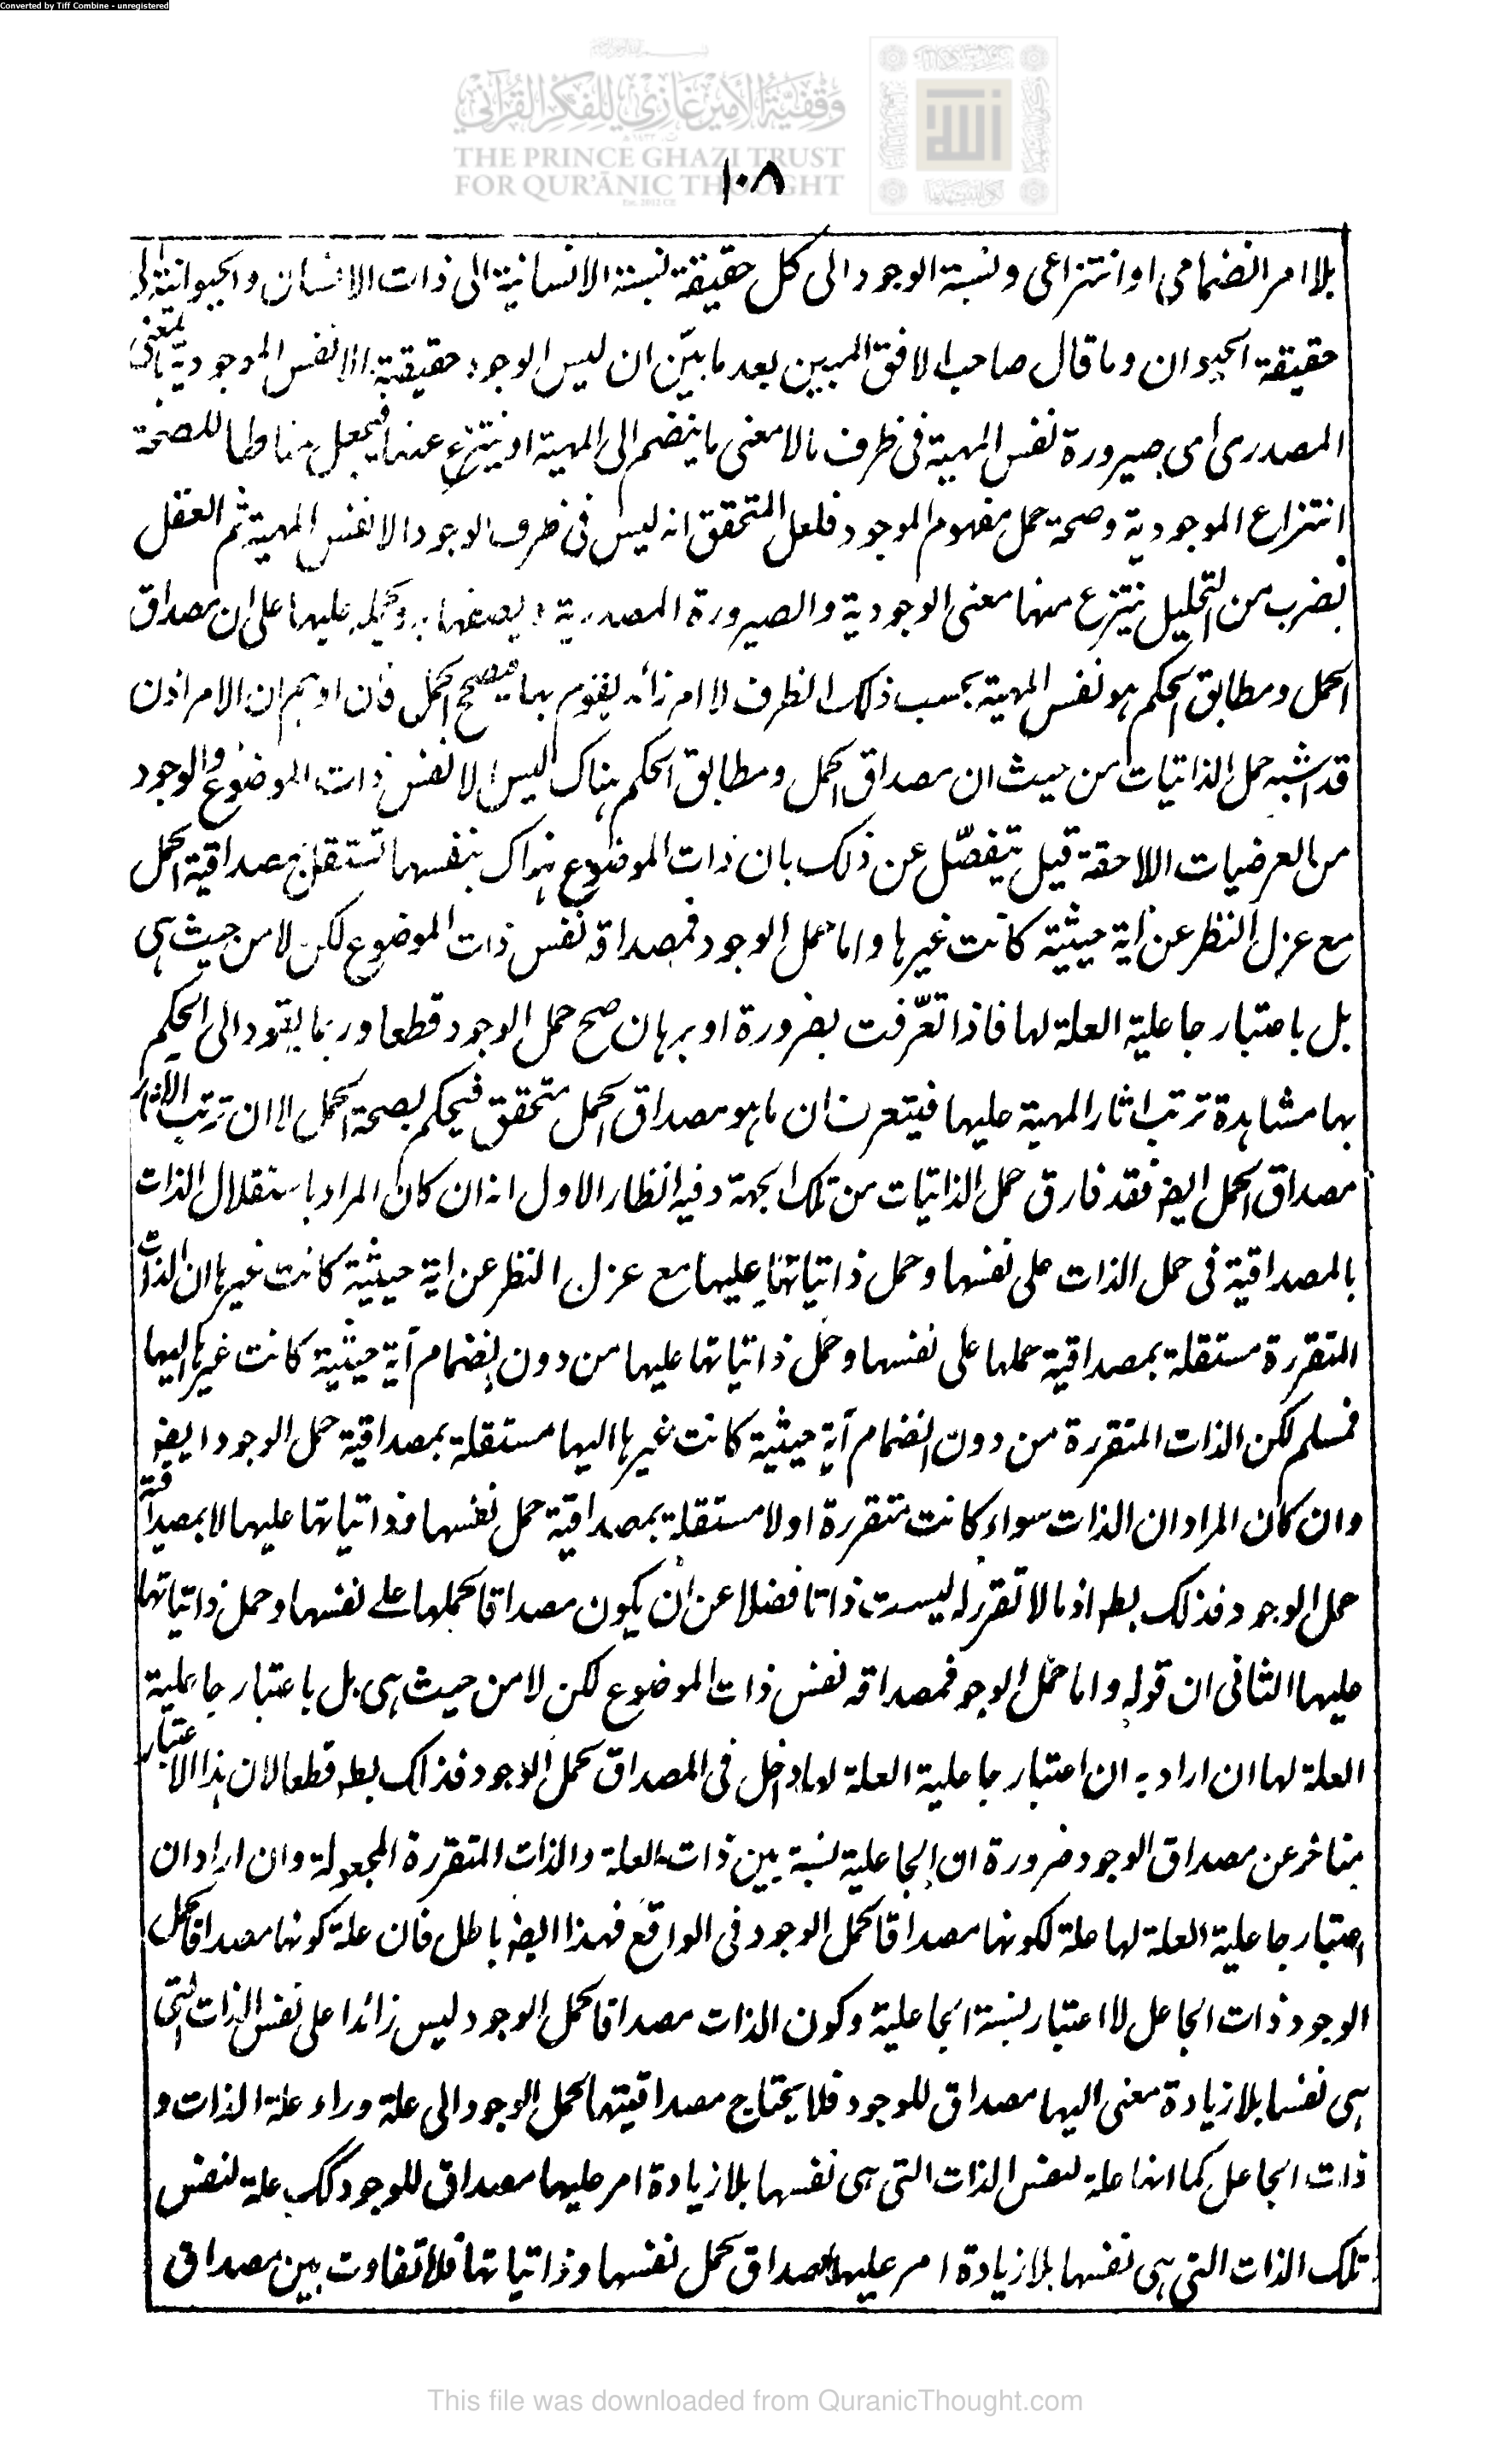 Converted by Tiff Combine - unregistered
وقفية الأمير غازي للفكر القرآني
THE PRINCE GHAZI TRUST
FOR QUR'ĀNIC THOUGHT
١٠٨
بلا امر انضمامی او انتزاعی ونسبة الوجود الی کل حقیقة نسبة الانسانیة الی ذات الانسان والحیوانیة الی
حقیقة الحیوان وما قال صاحب الافق المبین بعد ما بیّن ان لیس الوجود حقیقیة الا نفس الموجودیة بالمعنی
المصدری ای صیرورة نفس المهیة فی ظرف ما لا معنی ما ینضم الی المهیة او ینتزع عنها فیجعل مناطا لصحة
انتزاع الموجودیة وصحة حمل مفهوم الموجود فلعل المتحقق انه لیس فی ظرف الوجود الا نفس المهیة ثم العقل
بضرب من التحلیل ینتزع منها معنی الوجودیة والصیرورة المصدریة ویصفها به ویحمله علیها علی ان مصداق
الحمل ومطابق الحکم هو نفس المهیة بحسب ذلک الظرف لا امر زائد یقوم بها فیصح الحمل فان اوهم ان الامر اذن
قد اشبه حمل الذاتیات من حیث ان مصداق الحمل ومطابق الحکم هناک لیس الا نفس ذات الموضوع والوجود
من العرضیات اللاحقة قیل یتفصّل عن ذلک بان ذات الموضوع هناک بنفسها تستقل بمصداقیة الحمل
مع عزل النظر عن ایة حیثیة کانت غیرها واما حمل الوجود فمصداقه نفس ذات الموضوع لکن لا من حیث هی
بل باعتبار جاعلیة العلة لها فاذا تعرّفت بضرورة او برهان صح حمل الوجود قطعا وربما یقود الی الحکم
بها مشاهدة ترتب اثار المهیة علیها فیتعرف ان ما هو مصداق الحمل متحقق فیحکم بصحة الحمل لا ان ترتب الاثار
مصداق الحمل ایضا فقد فارق حمل الذاتیات من تلک الجهة وفیه انظار الاول انه ان کان المراد باستقلال الذات
بالمصداقیة فی حمل الذات علی نفسها وحمل ذاتیاتها علیها مع عزل النظر عن ایة حیثیة کانت غیرها ان الذات
المتقررة مستقلة بمصداقیة حملها علی نفسها وحمل ذاتیاتها علیها من دون انضمام آیة حیثیة کانت غیرها الیها
فمسلم لکن الذات المتقررة من دون انضمام آیة حیثیة کانت غیرها الیها مستقلة بمصداقیة حمل الوجود ایضا
وان کان المراد ان الذات سواء کانت متقررة اولا مستقلة بمصداقیة حمل نفسها وذاتیاتها علیها لا بمصداقیة
حمل الوجود فذلک بط اذ ما لا تقرر له لیست ذاتا فضلا عن ان یکون مصداقا لحملها علے نفسها وحمل ذاتیاتها
علیها الثانی ان قوله واما حمل الوجو فمصداقه نفس ذات الموضوع لکن لا من حیث هی بل باعتبار جاعلیة
العلة لها ان اراد به ان اعتبار جاعلیة العلة لها دخل فی المصداق لحمل الوجود فذلک بط قطعا لان هذا الاعتبار
متاخر عن مصداق الوجود ضرورة ان الجاعلیة نسبة بین ذات العلة والذات المتقررة المجعولة وان اراد ان
اعتبار جاعلیة العلة لها علة لکونها مصداقا لحمل الوجود فی الواقع فهذا ایضا باطل فان علة کونها مصداقا لحمل
الوجود ذات الجاعل لا اعتبار نسبة الجاعلیة وکون الذات مصداقا لحمل الوجود لیس زائدا علی نفس الذات التی
هی نفسها بلا زیادة معنی الیها مصداق للوجود فلا یحتاج مصداقیتها لحمل الوجود الی علة وراء علة الذات و
ذات الجاعل کما انها علة لنفس الذات التی هی نفسها بلا زیادة امر علیها مصداق للوجود کک علة لنفس
تلک الذات التی هی نفسها بلا زیادة امر علیها مصداق لحمل نفسها وذاتیاتها فلا تفاوت بین مصداق
This file was downloaded from QuranicThought.com